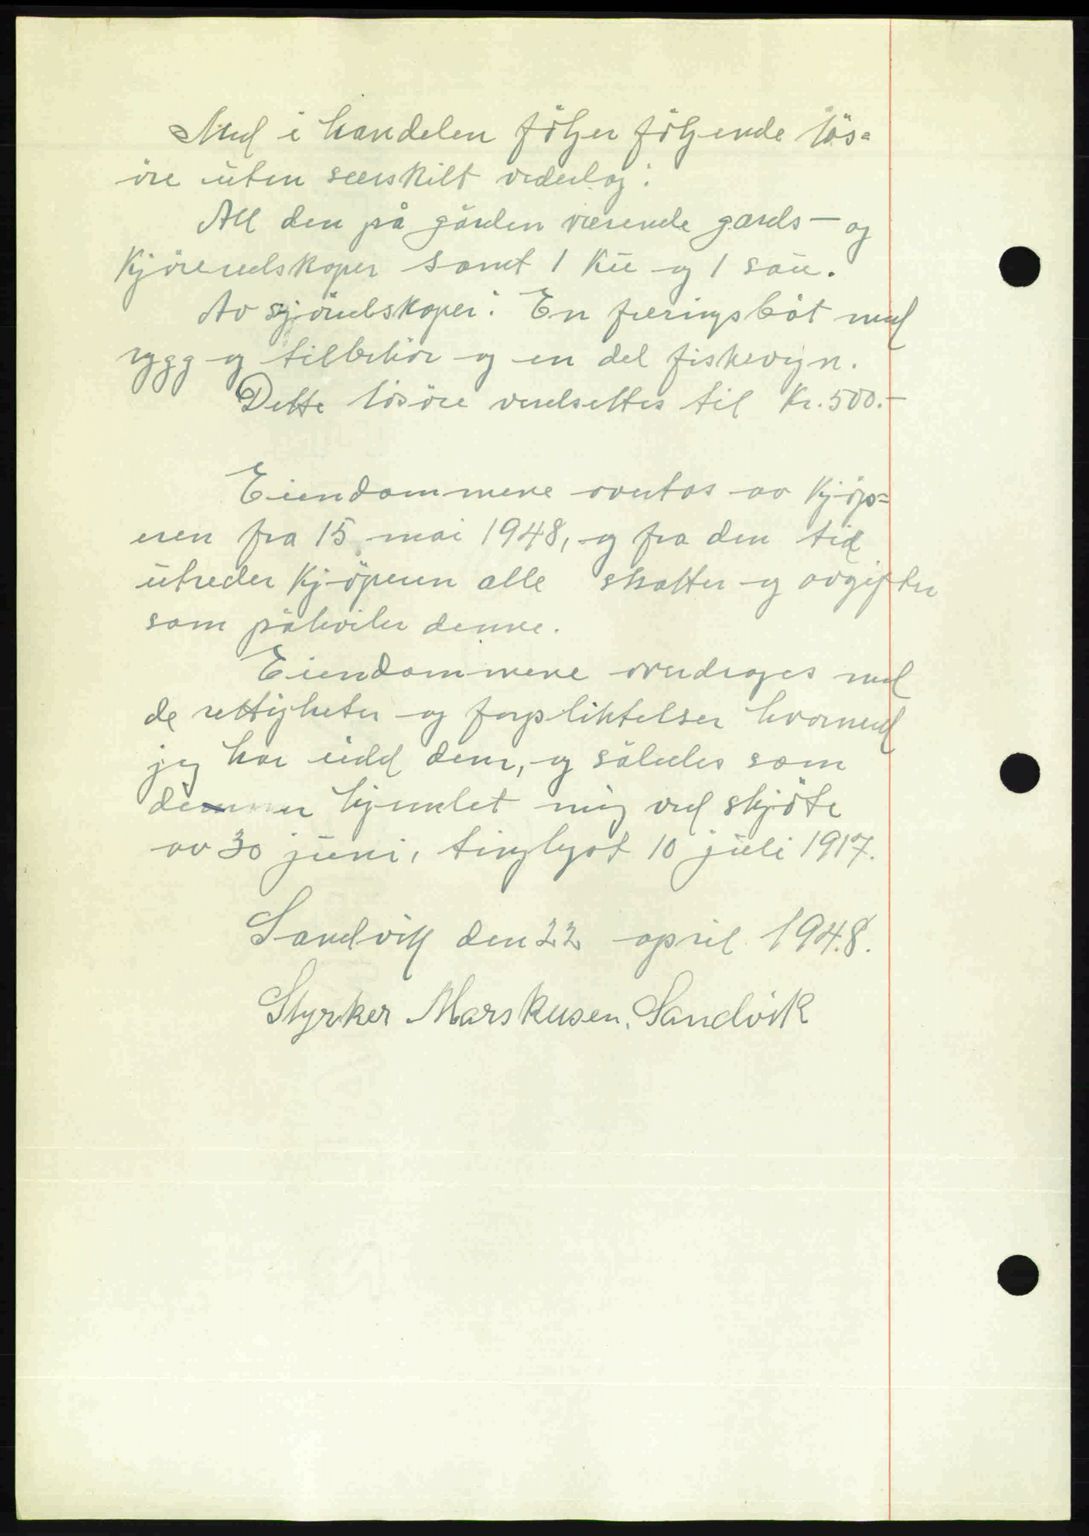 Med i handelen följer följende lös=
öre uten særskilt vederlag:
All den på gården værende gards- og
Kjöreredskaper samt 1 Ku og 1 sau.
Av sjöredskaper: En færingsbåt med
rygg og tilbehör og en del fiskevegn.
Dette lösöre verdsettes til Kr. 500.-
Eiendommene overtas av Kjöp=
eren fra 15 mai 1948, og fra den tid
utreder Kjöperen alle skatter og avgifter
som påhviler denne.
Eiendommene overdrages med
de rettigheter og forpliktelser hvormed
jeg har eidd dem, og således som
de er hjemlet mig ved skjöte
av 30 juni, tinglyst 10 juli 1917.
Sandvik den 22 april 1948.
Styrker Marskusen. Sandvik